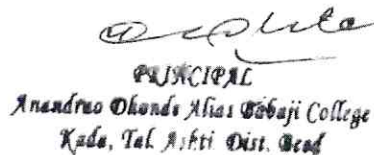 PRINCIPAL
Anandrao Dhonde Alias Babaji College
Kada, Tal. Ashti Dist. Beed